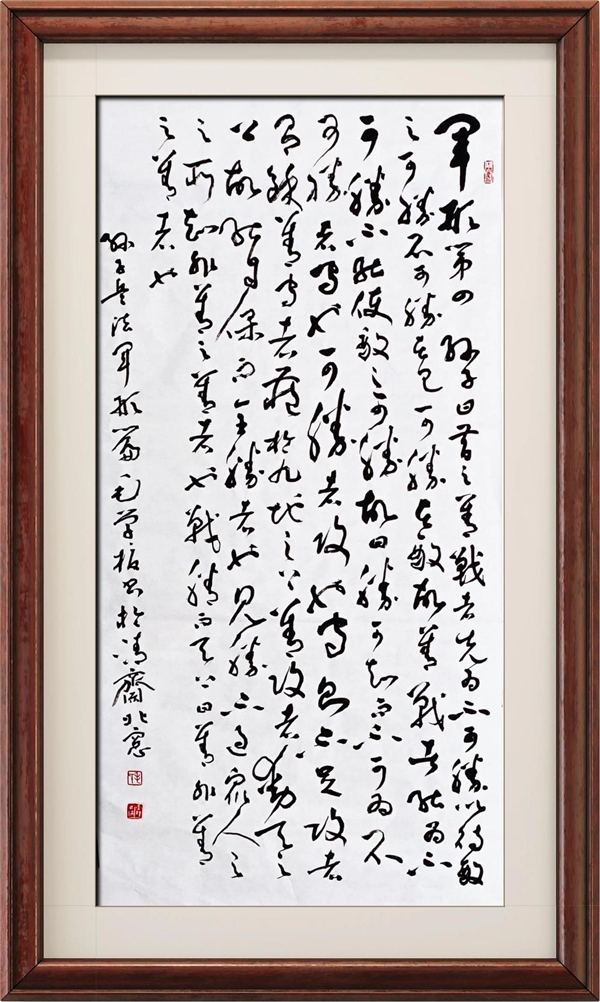 軍形第四 孫子曰昔之善戰者先為不可勝以待敵
之可勝不可勝在己可勝在敵故善戰者能為不
可勝不能使敵之可勝故曰勝可知而不可為不
可勝者守也可勝者攻也守則不足攻者
有餘善守者藏於九地之下善攻者動天之
上故能自保而全勝者也見勝不過眾人之
之所知非善之善者也戰勝而天下曰善非善
之善者也
孫子兵法軍形篇毛學書於齋北窗